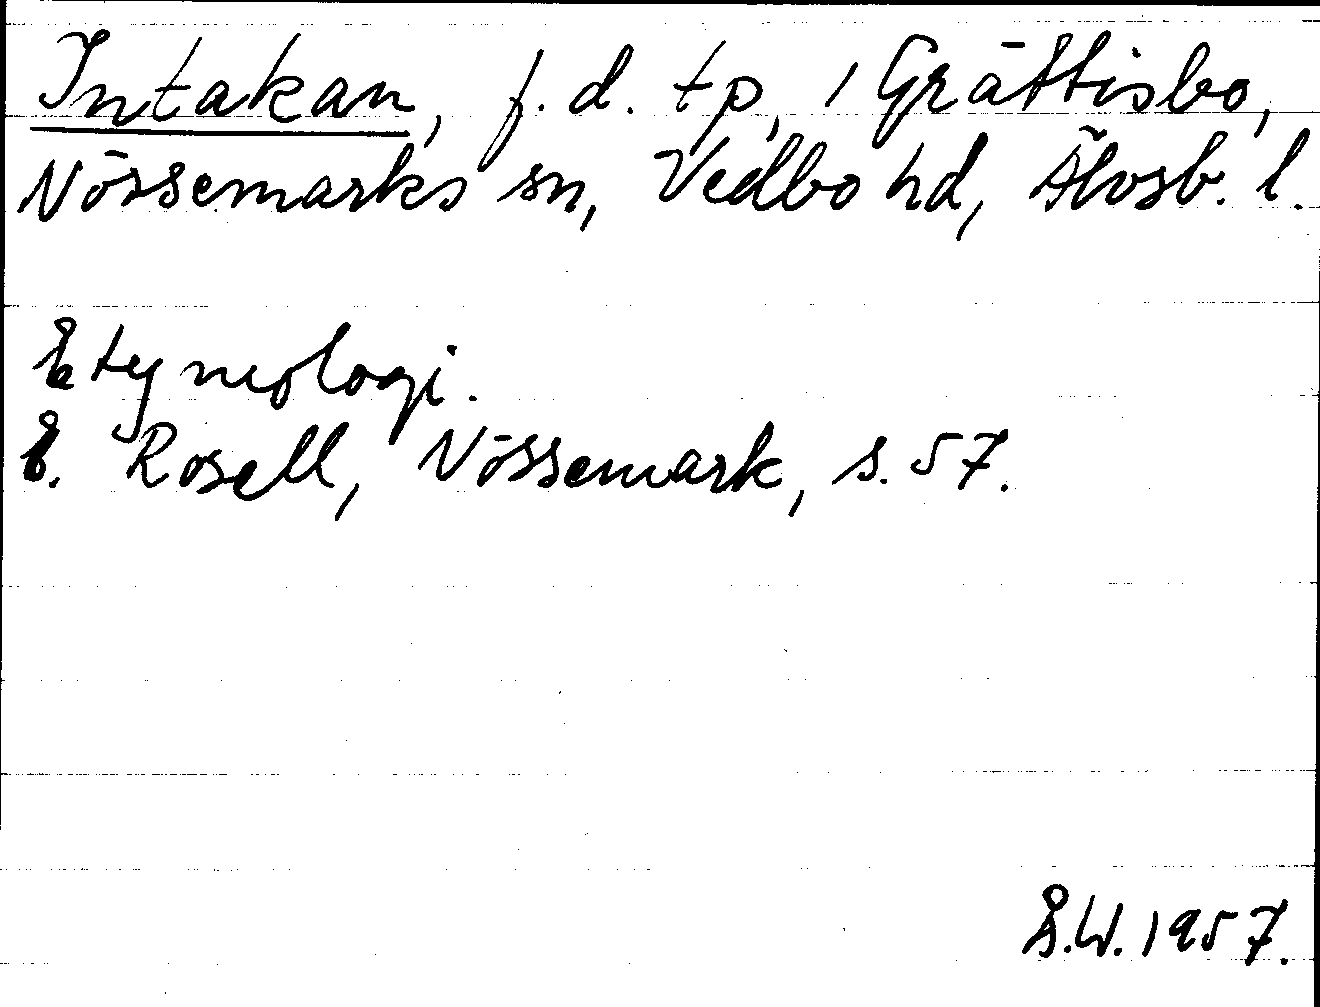 Intakan, f.d. tp, i Grättisbo,
Nössemarks sn, Vedbo hd, Älvsb. l.
Etymologi.
E. Rosell, Nössemark, s. 57.
Å.W. 1957.